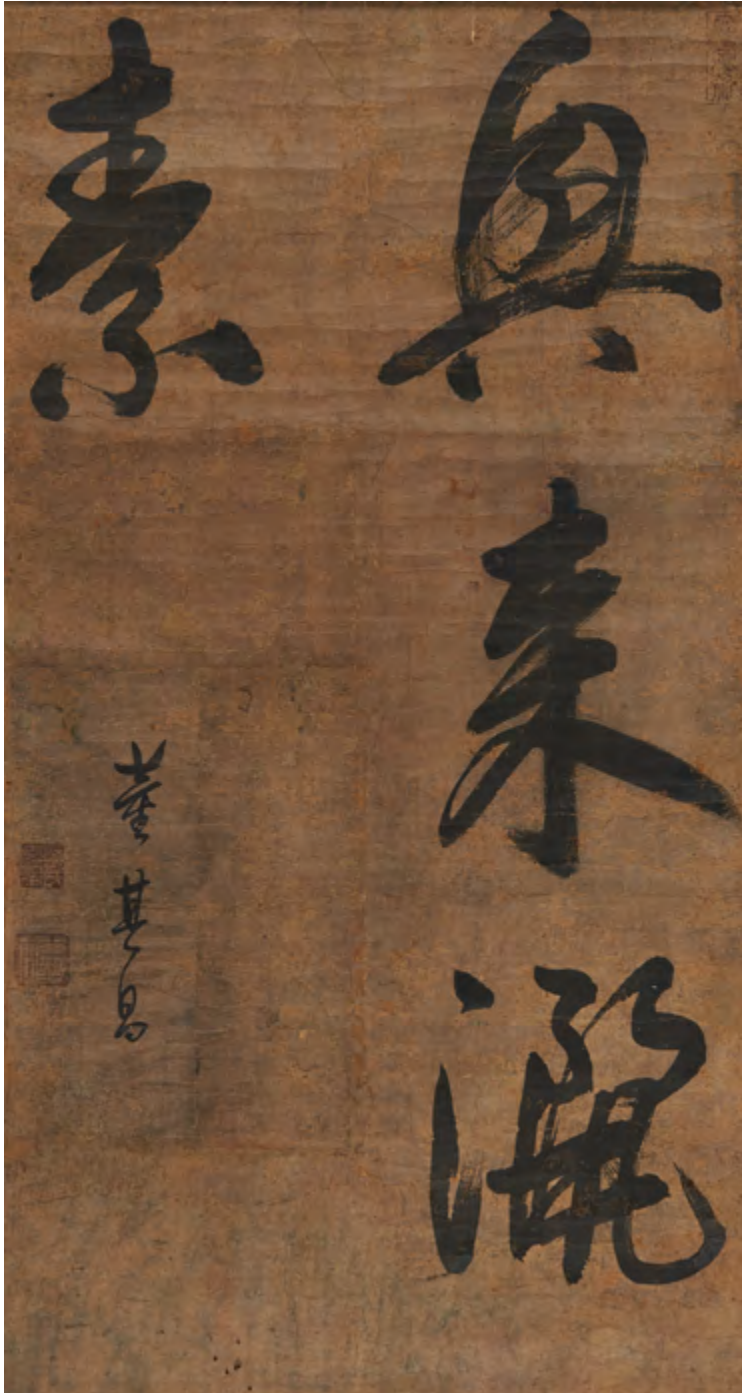 興來灑
素
董其昌